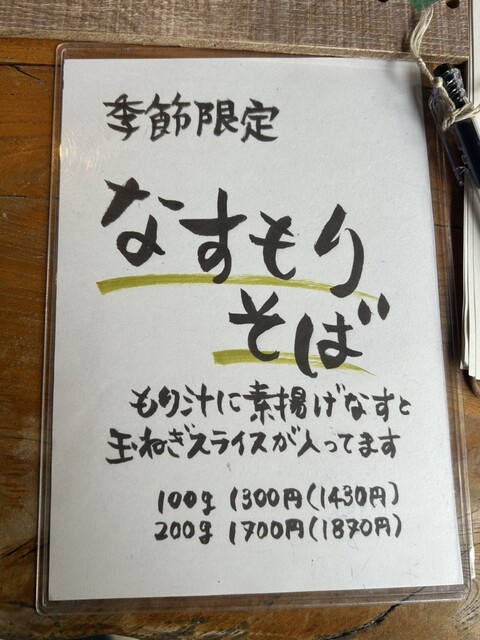 季節限定
なすもり
そば
もり汁に素揚げなすと
玉ねぎスライスが入ってます
100g 1300円(1430円)
200g 1700円(1870円)